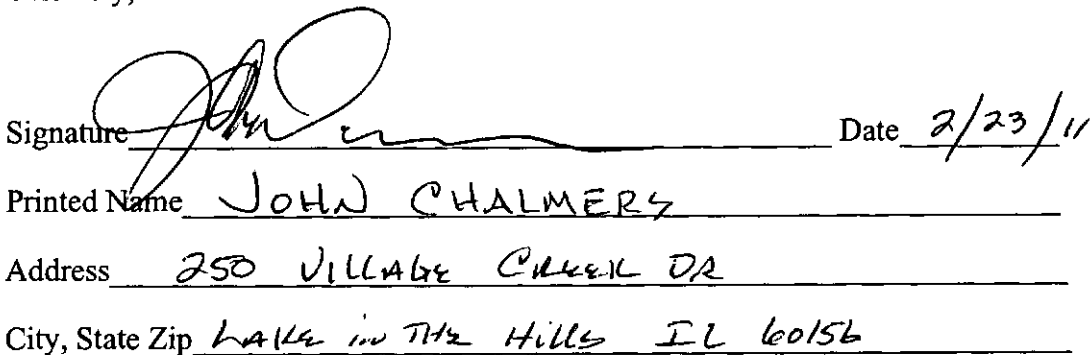 Signature Date 2/23/11
Printed Name JOHN CHALMERS
Address 250 VILLAGE CREEK DR
City, State Zip LAKE in THE Hills IL 60156